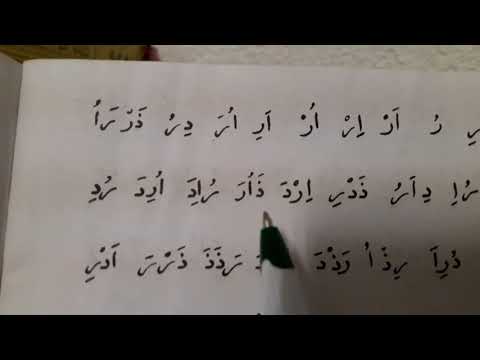 رِ رُ اَرْ اِرْ اُرْ اَرِ اُرَ دِرُ
دِاَرُ ذَدْرِ اِرْدَ ذَاُرَ رُاِدَ اُرِدَ رُدِ
دُرِاَ رِذَاُ رَذْدَ رَرَذَذَ ذَرْرَ اَدْرِ